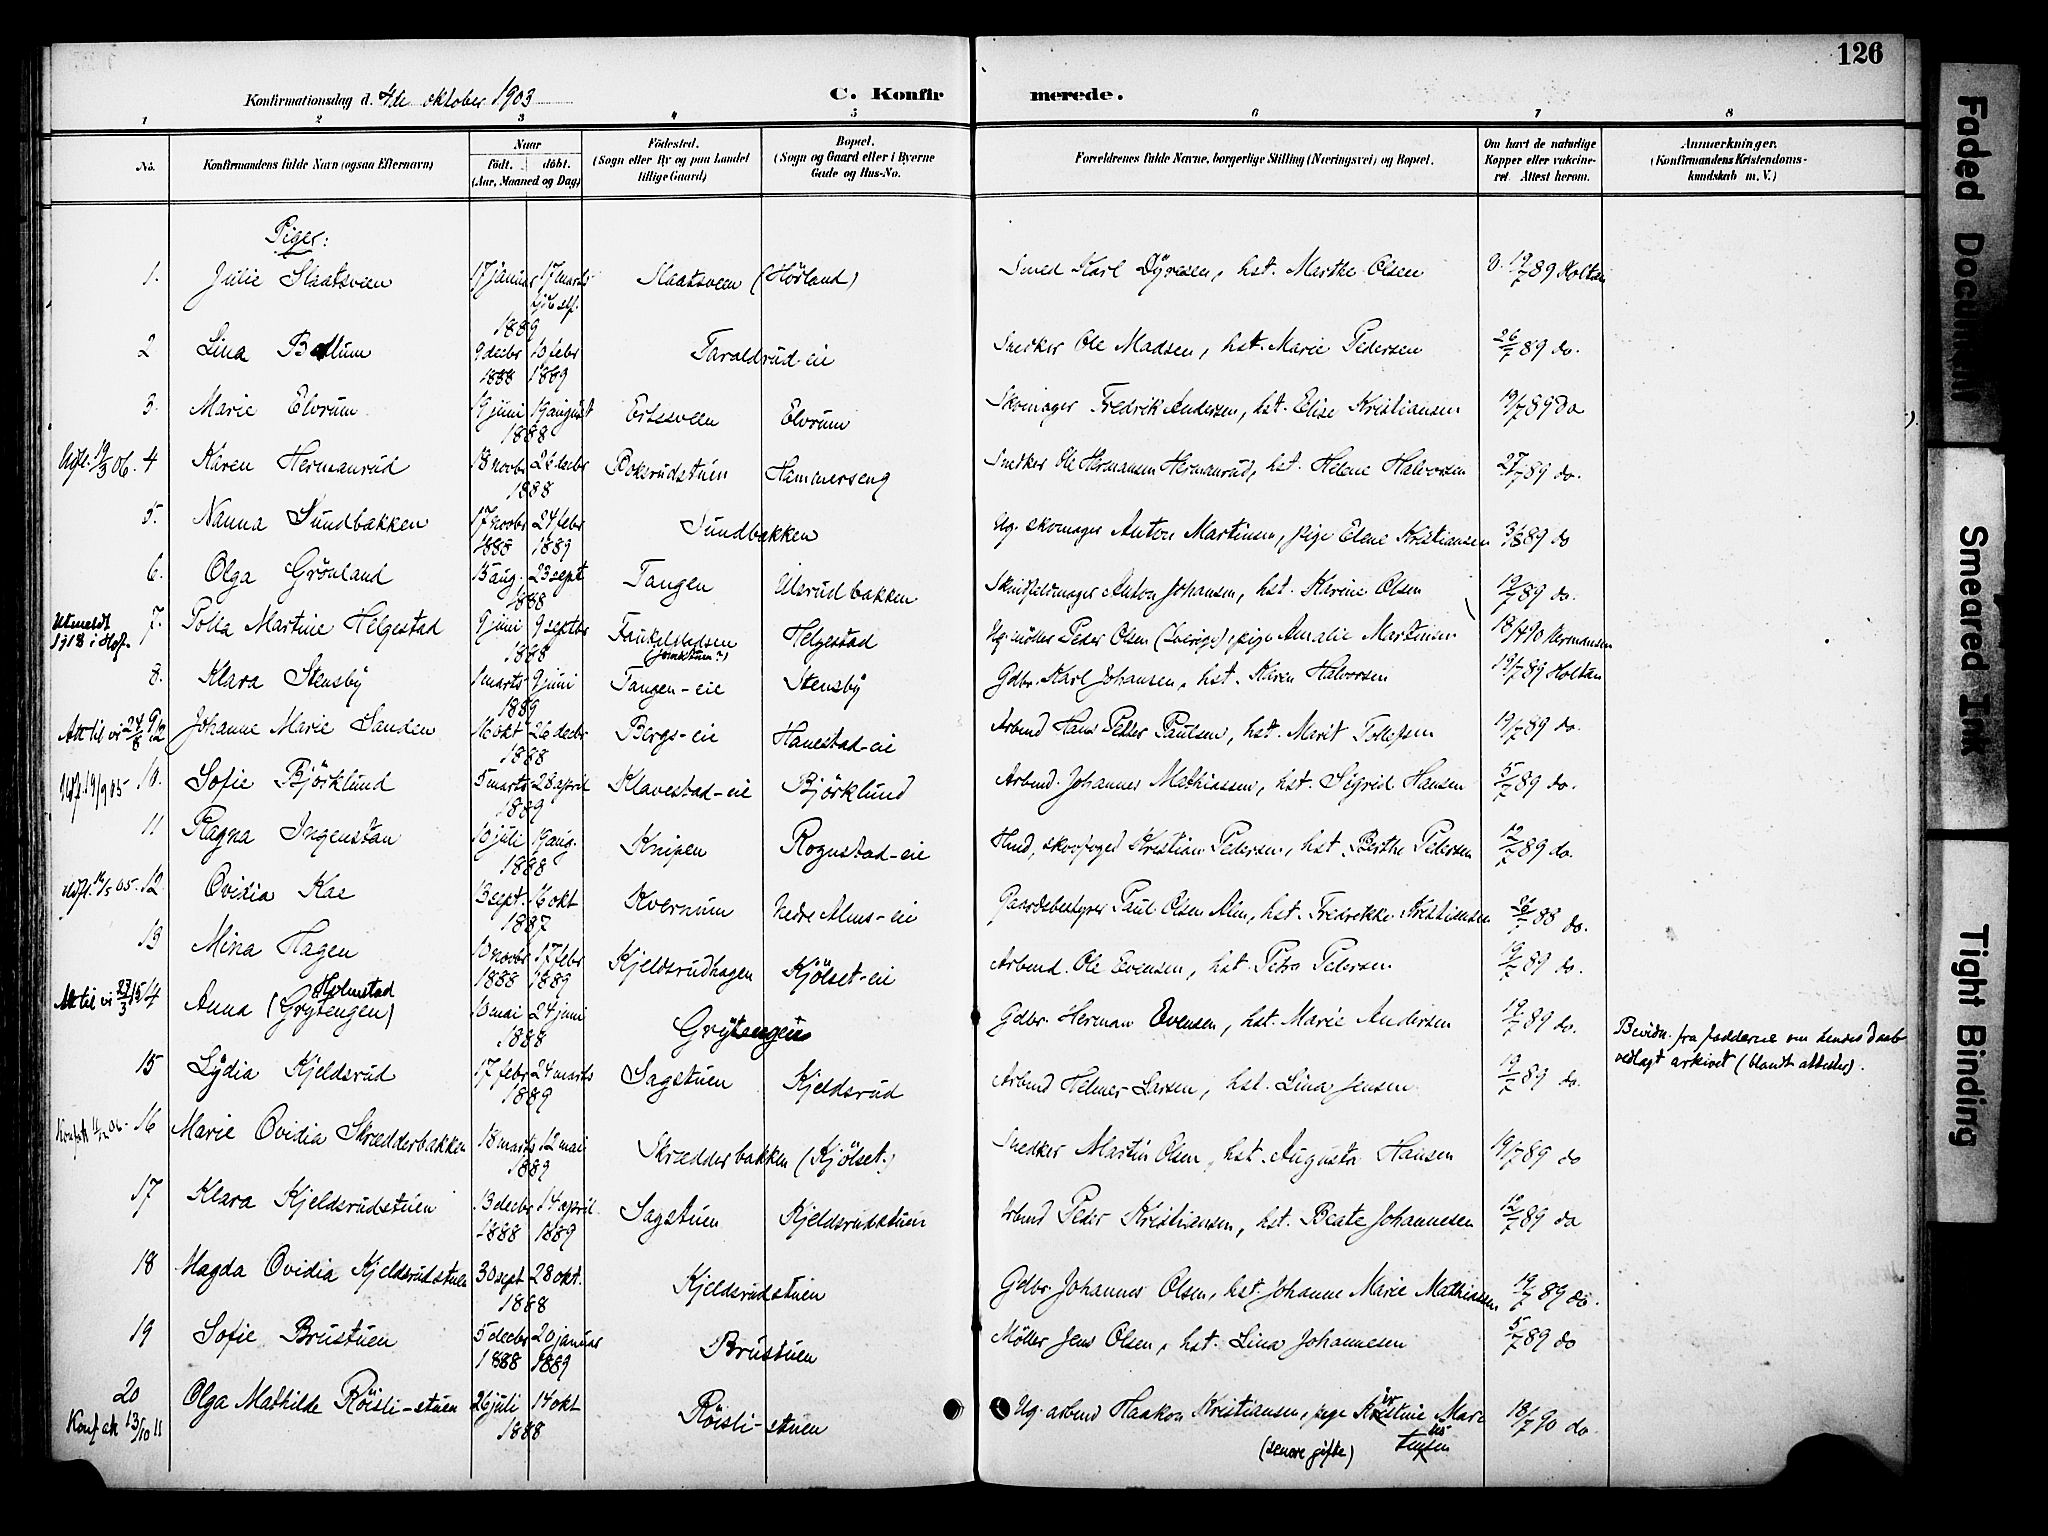 126
Konfirmationsdag d. 4de oktober 1903
C. Konfirmerede.
1 2 3 4 5 6 7 8
No. Konfirmandens fulde Navn (ogsaa Efternavn) Naar født. døbt. (Aar, Maaned og Dag) Fødested. (Sogn eller By og paa Landet tillige Gaard) Bopæl. (Sogn og Gaard eller i Byerne Gade og Hus-No. Forældrenes fulde Navne, borgerlige Stilling (Næringsvei) og Bopæl. Om havt de naturlige Kopper eller vakcineret. Attest herom. Anmærkninger. (Konfirmandens Kristendomskundskab m. V.)
Piger:
1. Julie Slaatsveen 17 januar 17 marts 1889 Slaatsveen (Hørland) Smed Karl Dyresen, hst. Marthe Olsen 19/7 89 Holtan
2 Lina Bollum 9 decbr 1888 10 febr 1889 Taraldrud-eie Snedker Ole Madsen, hst. Marie Pedersen 26/7 89 do.
3. Marie Elvrum 19 juni 19 august 1888 Ertesveen Elvrum Skomager Fredrik Andersen, hst. Elise Kristiansen 19/7 89 do
Udfl. 19/3 06. 4 Karen Hermanrud 18 novbr 26 decbr 1888 Boksrudstuen Hammerseng Snedker Ole Hermansen Hermanrud, hst. Helene Halvorsen 27/7 89 do.
5. Nanna Sundbakken 17 novbr 1888 24 febr 1889 Sundbakken Ug. skomager Anton Martinsen, pige Elene Kristiansen 3/8 89 do
6. Olga Grønland 15 aug. 23 sept 1888 Tangen Ulsrudbakken Skindfeldmager Anton Johansen, hst. Karine Olsen 19/7 89 do.
Utmeldt 1918 i Hof. 7. Tolla Martine Helgestad 9 juni 9 septbr 1888 Helgestad Ug. møller Peder Olsen (Sverige), pige Amalie Martinsen 18/7 90 Hermansen
8. Klara Stensby 1 marts 9 juni 1889 Tangen-eie Stensby Gdbr. Karl Johansen, hst. Karen Halvorsen 19/7 89 Holtan
Att til vi 24/8 12 9 Johanne Marie Sanden 16 okt 26 decbr 1888 Bergs-eie Hanestad-eie Arbmd Hans Petter Paulsen, hst. Marit Tollefsen 19/7 89 do.
Udfl. 19/9 05- 10. Sofie Bjørklund 5 marts 28 april 1889 Klavestad-eie Bjørklund Arbmd. Johannes Mathiassen, hst. Sigrid Hansen 5/7 89 do.
11 Ragna Ingenstan 10 juli 19 aug. 1888 Knipen Rognstad-eie Hmd, skovfoged Kristian Pedersen, hst. Berthe Pedersen 12/7 89 do.
Udfl. 12/5 05. 12. Ovidia Kae 13 sept. 16 okt 1887 Kvernum Nedre Alms-eie Gaardsbestyrer Paul Olsen Alm, hst. Fredrikke Kristiansen 88 do.
13 Mina Hagen 10 novbr 1888 17 febr 1889 Kjeldsrudhagen Kjølset-eie Arbmd. Ole Evensen, hst. Petra Pedersen 19/7 89 do.
Att til vi 27/3 15 14 Anna (Grytengen) Holmstad 10 mai 24 juni 1888 Grytengen Gdbr. Herman Evensen, hst. Marie Andersen 19/7 89 do. Bevidn. fra fadderne om hendes daab vedlagt arkivet (blandt attester).
15 Lydia Kjeldsrud 17 febr 24 marts 1889 Sagstuen Kjeldsrud Arbmd Helmer Larsen, hst. Lina Jensen 19/7 89 do.
Konfatt 11/12 06- 16 Marie Ovidia Skrædderbakken 18 marts 12 mai 1889 Skrædderbakken (Kjølset.) Snedker Martin Olsen, hst. Augusta Hansen 19/7 89 do
17 Klara Kjeldsrudstuen 13 decbr 1888 14 april 1889 Sagstuen Kjeldsrudstuen Arbmd Peder Kristiansen, hst. Beate Johannesen 12/7 89 do
18 Magda Ovidia Kjeldsrudstuen 30 sept 28 okt. 1888 Kjeldsrudstuen Gdbr. Johannes Olsen, hst. Johanne Marie Mathiassen 19/7 89 do.
19 Sofie Brustuen 5 decbr 1888 20 januar 1889 Brustuen Møller Jens Olsen, hst. Lina Johannesen 5/7 89 do
20 Konf att 13/10 11 Olga Mathilde Røisli-stuen 26 juli 14 okt 1888 Røisli-stuen Ug. arbmd Haakon Kristiansen, pige Kristine Mari (senere gifte) 18/7 90 do.
Faded Document
Smeared Ink
Tight Binding